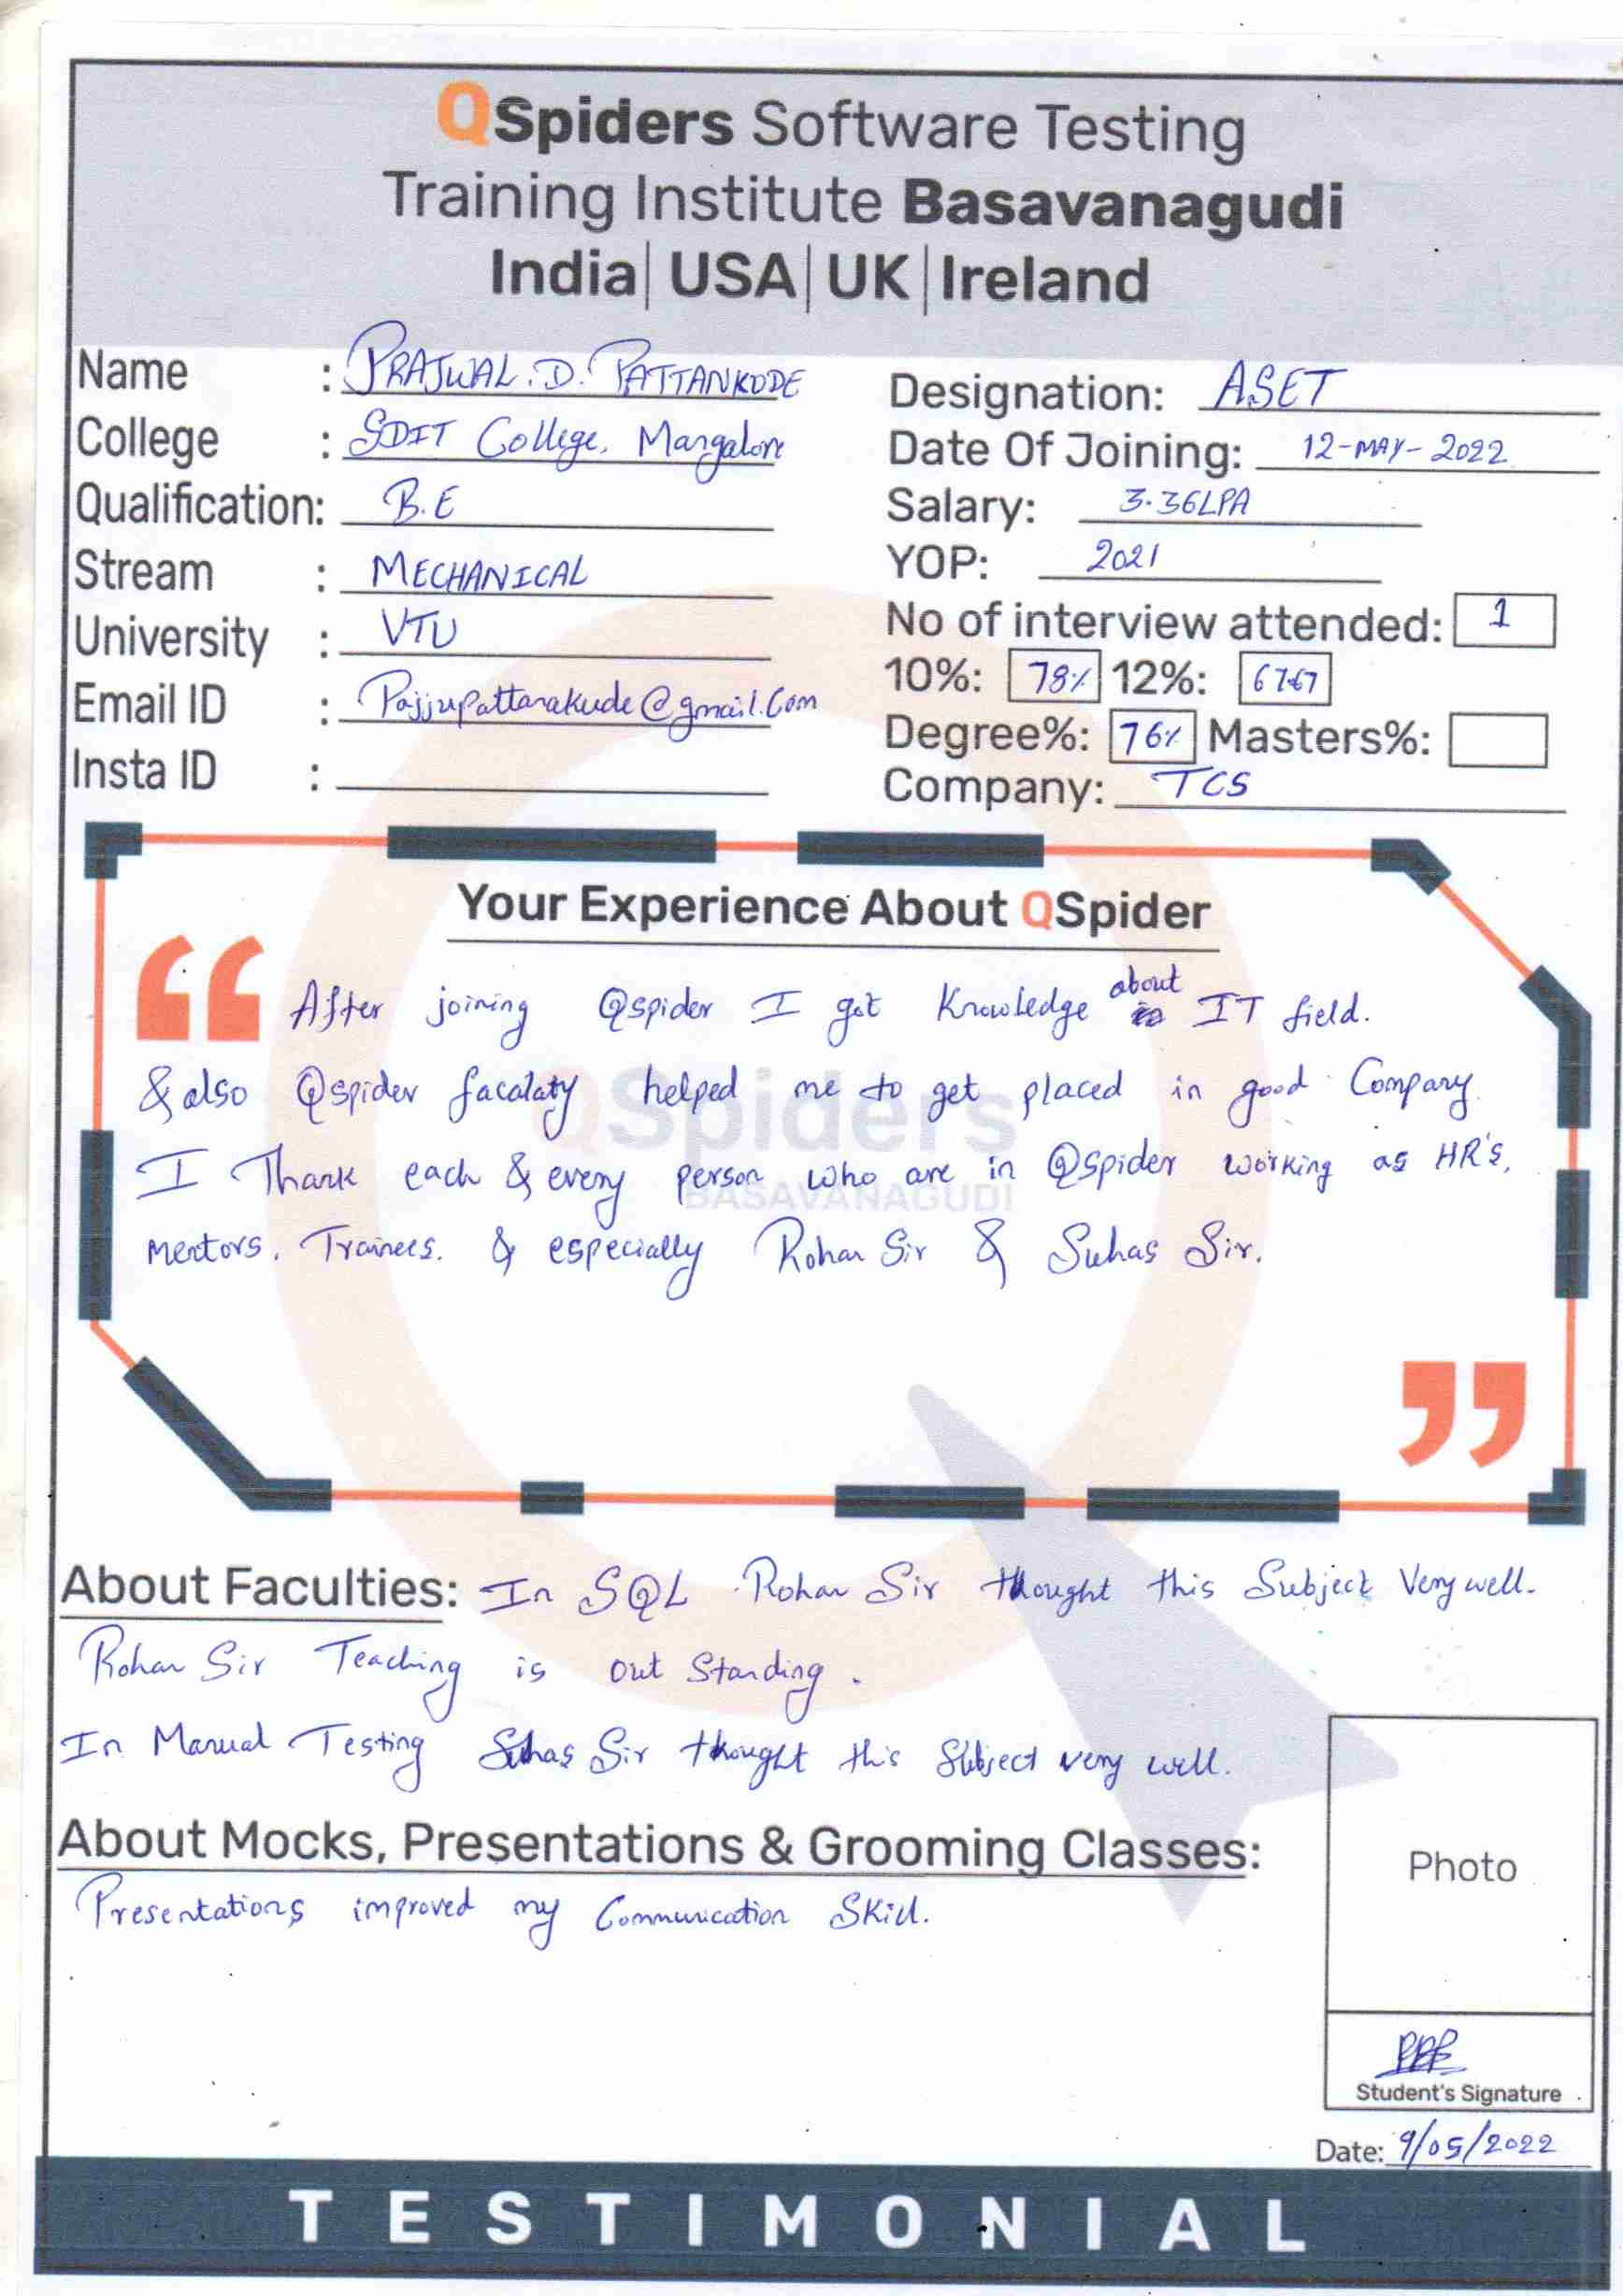 QSpiders Software Testing
Training Institute Basavanagudi
India| USA| UK |Ireland
Name : PRAJWAL.D. PATTANKUDE
College : SDIT College, Mangalore
Qualification: B.E
Stream : MECHANICAL
University : VTU
Email ID : Pajjupattanakude@gmail.com
Insta ID :
Designation: ASET
Date Of Joining: 12-MAY-2022
Salary: 3.36LPA
YOP: 2021
No of interview attended: 1
10%: 78% 12%: 67.67
Degree%: 76% Masters%:
Company: TCS
Your Experience About QSpider
“ After joining Qspider I got Knowledge about IT field.
& also Qspider facalaty helped me to get placed in good Company
I Thank each & every person who are in Qspider working as HR's,
mentors, Trainees. & especially Rohan Sir & Suhas Sir.
”
QSpiders
BASAVANAGUDI
About Faculties: In SQL Rohan Sir thought this Subject Very well.
Rohan Sir Teaching is out Standing.
In Manual Testing Suhas Sir thought this Subject very well.
About Mocks, Presentations & Grooming Classes:
Presentations improved my Communication Skill.
Photo
Student's Signature
Date: 9/05/2022
TESTIMONIAL